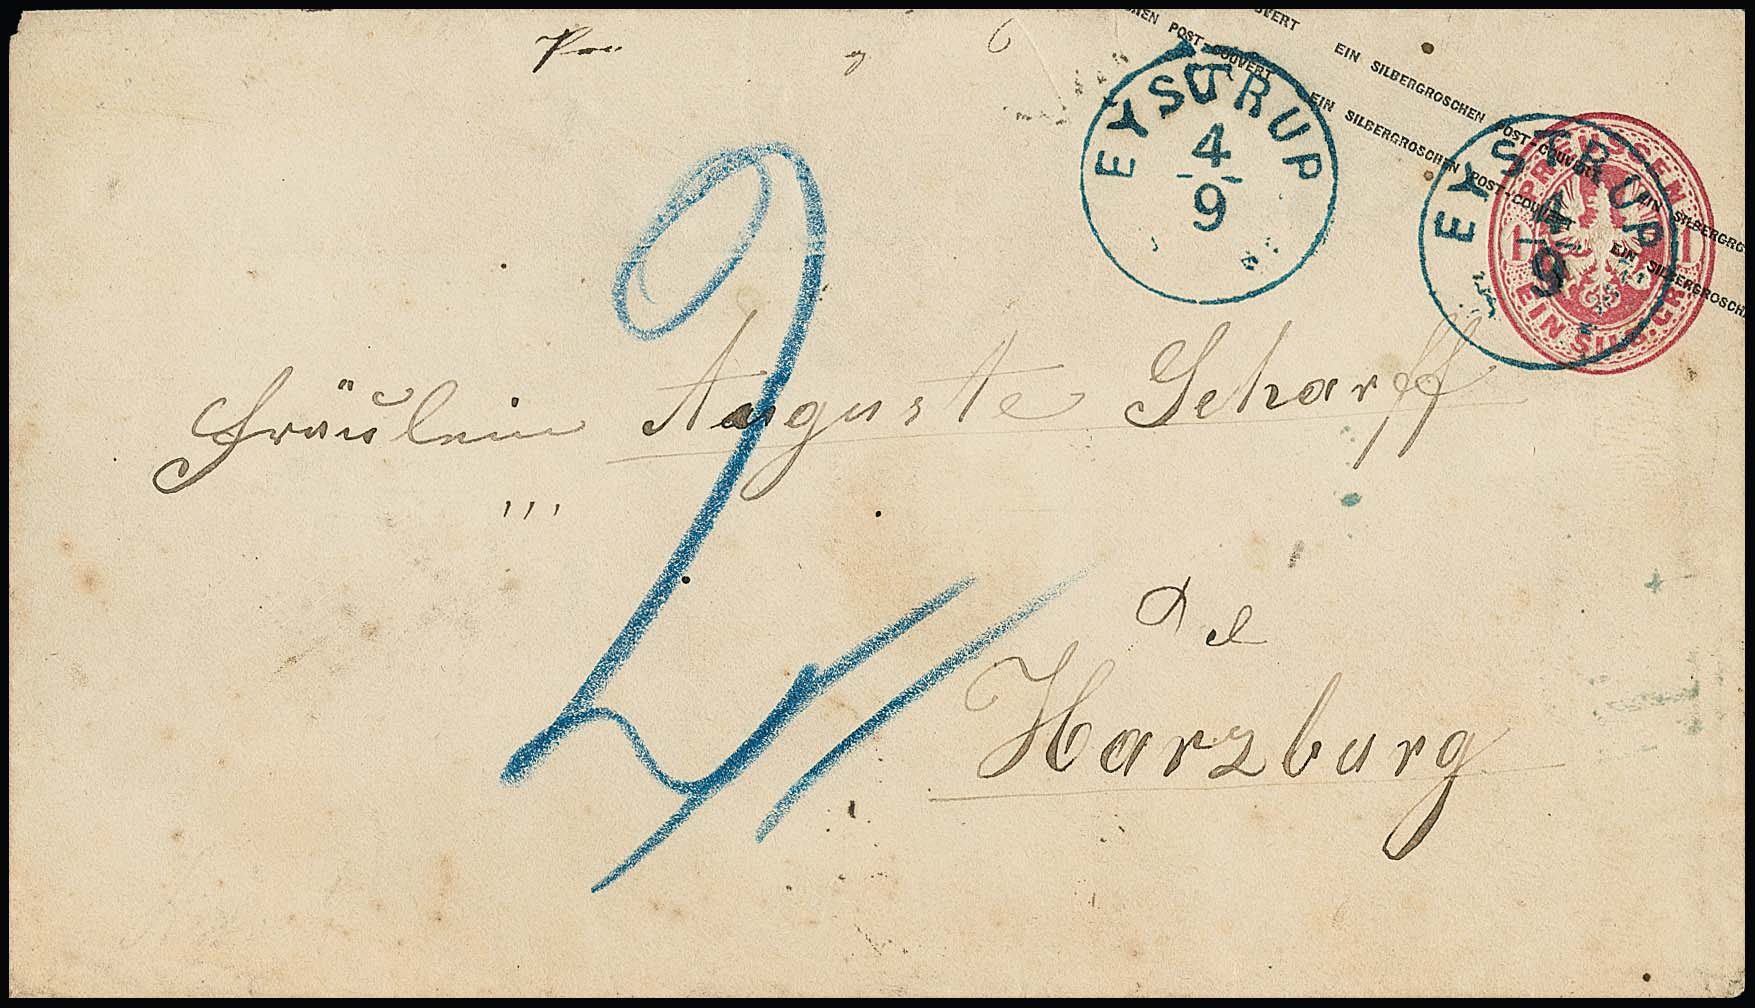 EIN SILBERGROSCHEN POST-COUVERT
EIN SILBERGROSCHEN POST-COUVERT
EIN SILBERGROSCHEN
EIN SILBERGROSCH
EYSTRUP
4
9
EYSTRUP
4
9
PREUSSEN
1 1
EIN SILB. GR.
2
Fräulein Auguste Scharff
Harzburg